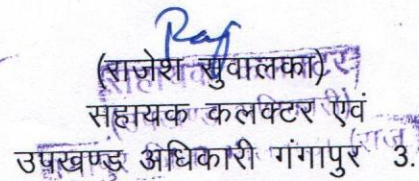 Raj
(राजेश सुवालका)
सहायक कलक्टर एवं
उपखण्ड अधिकारी गंगापुर 3.